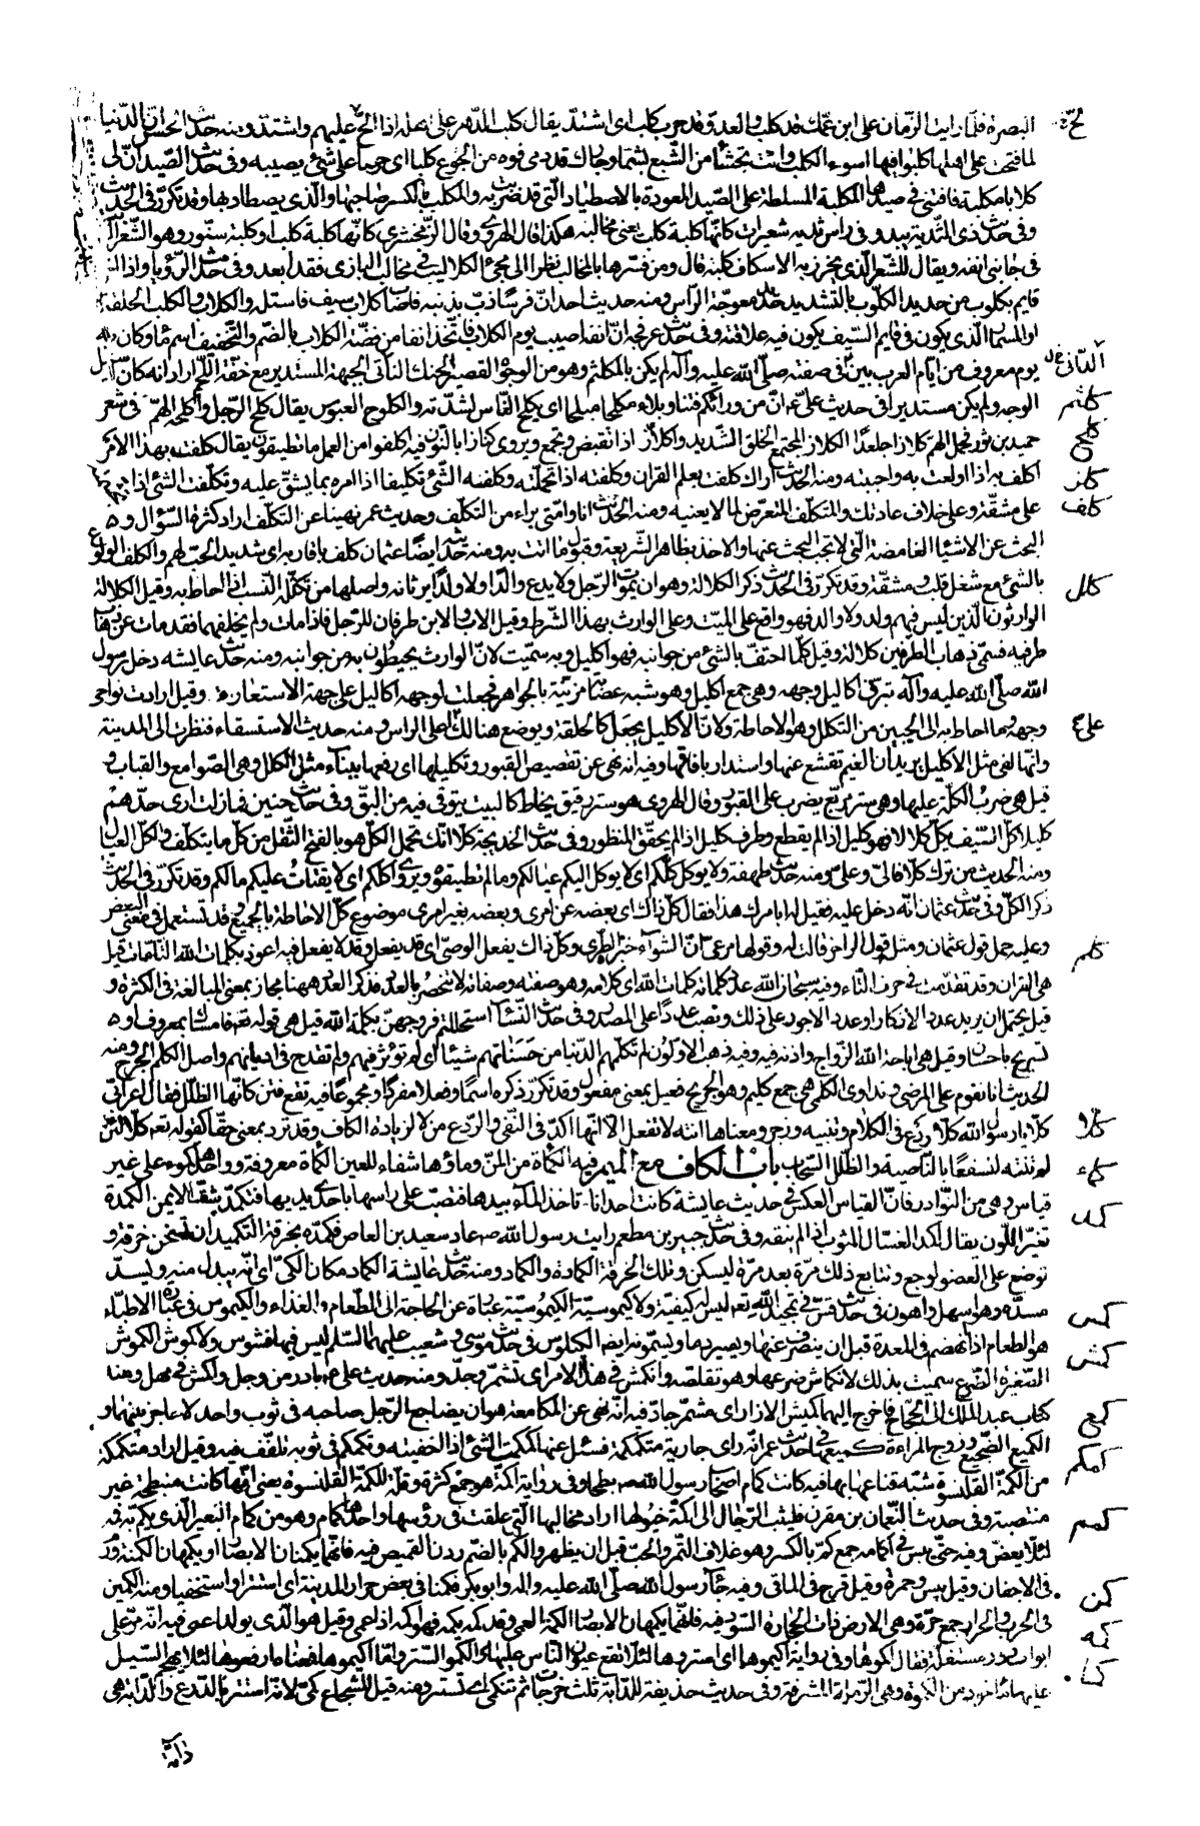 البصرة فلما رايت الزمان على ابن عمك قد كلب والعدو قد حرب كلب اى اشتد يقال كلب الدهر على اهله اذا الح عليهم واشتد ومنه حديث الحسن ان الدنيا
لما فتحت على اهلها كلبوا فيها اسوء الكلب وانت تجشأ من الشبع بشما وجارك قد دمى فوه من الجوع كلبا اى حرصا على شئ يصيبه وفى حديث الصيد ان لى
كلابا مكلبة فافتنى فى صيدها المكلبة المسلطة على الصيد المعودة بالاصطياد التى قد ضريت به والمكلب بالكسر صاحبها والذى يصطاد بها وقد تكرر فى الحديث
وفى حديث ذى الثدية يبدو فى راس ثديه شعيرات كانها كلبة كلب يعنى مخالبه هكذا قال الهروى وقال الزمخشرى كانها كلبة كلب او كلبة سنور وهو الشعر
فى جانبى انفه ويقال للشعر الذى يخرز به الاسكاف كلبة قال ومن فسرها بالمخالب نظرا الى مجئ الكلاليب فى مخالب البازى فقد ابعد وفى حديث الرؤيا واذا
قايم بكلوب من حديد الكلوب بالتشديد حديدة معوجة الراس ومنه حديث احد ان فرسا ذب بذنبه فاصاب كلاب سيف فاستل والكلاب والكلب الحلقة
او المسمار الذى يكون فى قايم السيف يكون فيه علاقته وفى حديث عرفجة ان انفه اصيب يوم الكلاب فاتخذ انفا من فضة الكلاب بالضم والتخفيف اسم ماء وكان به
يوم معروف من ايام العرب بين فى صفته صلى الله عليه وآله لم يكن بالمكلثم وهو من الوجوه القصير الحنك الناتى الجبهة المستدير مع خفة اللحم اراد انه كان اسيل
الوجه ولم يكن مستديرا فى حديث على ع ان من ورائكم فتنا وبلاء مكلحا مبلحا اى يكلح الناس لشدته والكلوح العبوس يقال كلح الرجل واكلحه الهم فى شعر
حميد بن ثور فحمل الهم كلازا جلعدا الكلاز المجتمع الخلق الشديد واكلأز اذا انقبض وتجمع ويروى كنازا بالنون فيه اكلفوا من العمل ما تطيقون يقال كلفت بهذا الامر
اكلف به اذا اولعت به واحببته ومنه الحديث اراك كلفت بعلم القران وكلفته اذا تحملته وكلفه الشئ تكليفا اذا امره بما يشق عليه وتكلفت الشئ اذا
على مشقة وعلى خلاف عادتك والمتكلف المتعرض لما لا يعنيه ومنه الحديث انا وامتى براء من التكلف وحديث عمر نهينا عن التكلف اراد كثرة السؤال و
البحث عن الاشياء الغامضة التى لا تجب البحث عنها والاخذ بظاهر الشريعة وقبول ما اتت به ومنه حديثه ايضا عثمان كلف باقاربه اى شديد الحب لهم والكلف الولوع
بالشئ مع شغل قلب ومشقة وقد تكرر فى الحديث ذكر الكلالة وهو ان يموت الرجل ولا يدع والدا ولا ولدا يرثانه واصلها من تكلله النسب اذا احاط به وقيل الكلالة
الوارثون الذين ليس فيهم ولد ولا والد فهو واقع على الميت وعلى الوارث بهذا الشرط وقيل الاب والابن طرفان للرجل فاذا مات ولم يخلفهما فقد مات عن ذهاب
طرفيه فسمى ذهاب الطرفين كلالة وقيل كلما احتف بالشئ من جوانبه فهو اكليل وبه سميت لان الوارث يحيطون به من جوانبه ومنه حديث عايشه دخل رسول
الله صلى الله عليه وآله تبرق اكاليل وجهه وهى جمع اكليل وهو شبه عصابة مزينة بالجواهر فجعلت لوجهه اكاليل على جهة الاستعارة وقيل ارادت نواحى
وجهه وما احاط به الى الجبين من التكلل وهو الاحاطة ولان الاكليل يجعل كالحلقة ويوضع هنالك على الراس ومنه حديث الاستسقاء فنظرت الى المدينة
وانها لفى مثل الاكليل يريد ان الغيم تقشع عنها واستدار بافاقها وفيه انه نهى عن تقصيص القبور وتكليلها اى رفعها ببناء مثل الكلل وهى الصوامع والقباب و
قيل هى ضرب الكلة عليها وهى ستر مربع يضرب على القبور وقال الهروى هو ستر رقيق يخاط كالبيت يتوقى فيه من البق وفى حديث حنين فما زلت ارى حدهم
كليلا كل السيف يكل كلالا فهو كليل اذا لم يقطع وطرف كليل اذا لم يحقق المنظور وفى حديث خديجة كلا انك تحمل الكل هو بالفتح الثقل من كل ما يتكلف والكل العيال
ومنه الحديث من ترك كلا فالى وعلى ومنه حديث طهفة ولا يوكل كلكم اى لا يوكل اليكم عيالكم وما لم تطيقوه ويروى اكلكم اى لا يفتات عليكم مالكم وقد تكرر فى الحديث
ذكر الكل وفى حديث عثمان انه دخل عليه فقيل له ابامرك هذا فقال كل ذاك اى بعضه عن امرى وبعضه بغير امرى موضوع كل الاحاطة بالجميع وقد تستعمل فى معنى البعض
وعليه حمل قول عثمان ومثل قول الراجز قالت له وقولها مرعى ان الشواء خيره الطرى وكل ذاك يفعل الوصى اى قد يفعل وقد لا يفعل فيه اعوذ بكلمات الله التامات قيل
هى القران وقد تقدمت فى حرف التاء وفيه سبحان الله عدد كلماته كلمات الله اى كلامه وهو صفته وصفاته لا تنحصر بالعدد فذكر العدد ههنا مجاز بمعنى المبالغة فى الكثرة و
قيل يحتمل ان يريد عدد الاذكار او عدد الاجور على ذلك ونصب عددا على المصدر وفى حديث النساء استحللتم فروجهن بكلمة الله قيل هى قوله تع فامساك بمعروف او
تسريح باحسان وقيل هى اباحة الله الزواج واذنه فيه وفيه ذهب الاولون لم تكلمهم الدنيا من حسناتهم شيئا اى لم تؤثر فيهم ولم تقدح فى اديانهم واصل الكلم الجرح ومنه
الحديث انا نقوم على المرضى ونداوى الكلمى هى جمع كليم وهو الجريح فعيل بمعنى مفعول وقد تكرر ذكره اسما وفعلا مفردا ومجموعا فيه تقع فتن كانها الظلل فقال اعرابى
كلا يا رسول الله كلا ردع فى الكلام وتنبيه وزجر ومعناها انته لا تفعل الا انها اكد فى النفى والردع من لا لزيادة الكاف وقد ترد بمعنى حقا كقوله تع كلا لئن
لم تنته لنسفعا بالناصية والظلل السحاب باب الكاف مع الميم فيه الكماة من المن وماؤها شفاء للعين الكماة معروفة وواحدها كموء على غير
قياس وهى من النوادر فان القياس العكس فى حديث عايشة كانت احدانا تاخذ الماء بيدها فتصب على راسها باحدى يديها فتكمد شقها الايمن الكمدة
تغير اللون يقال اكمد الغسال الثوب اذا لم ينقه وفى حديث جبير بن مطعم رايت رسول الله ص عاد سعيد بن العاص فكمده بخرقة التكميد ان تسخن خرقة و
توضع على العضو لوجع ويتابع ذلك مرة بعد مرة ليسكن وتلك الخرقة الكمادة والكماد ومنه حديث عايشة الكماد مكان الكى اى انه يبدل منه ويسد
مسده وهو اسهل واهون فى حديث قس فى تمجيد الله تع ليس له كيفية ولا كيموسية الكيموسية عبارة عن الحاجة الى الطعام والغذاء والكيموس فى عبارة الاطباء
هو الطعام اذا انهضم فى المعدة قبل ان ينصرف عنها ويصير دما ويسمونه ايضا الكيلوس فى حديث موسى وشعيب عليهما السلم ليس فيها فشوش ولا كموش الكموش
الصغيرة الضرع سميت بذلك لانكماش ضرعها وهو تقلصه وانكمش فى هذا الامر اى تشمر وجد ومنه حديث على ع بادر من وجل واكمش فى مهل ومنه
كتاب عبد الملك الى الحجاج فاخرج اليهما كميش الازار اى مشمر جاد فيه انه نهى عن المكامعة هو ان يضاجع الرجل صاحبه فى ثوب واحد لا حاجز بينهما و
الكميع الضجيع وزوج المراءة كميعها فى حديث عمر انه راى جارية متكمكمة فسئل عنها كمكمت الشئ اذا اخفيته وتكمكم فى ثوبه تلفف فيه وقيل اراد متكمكمة
من الكمة القلنسوة شبه قناعها بها فيه كانت كمام اصحاب رسول الله ص بطحا وفى رواية اكمة هو جمع كثرة وقلة للكمة القلنسوة يعنى انها كانت منبطحة غير
منتصبة وفى حديث النعمان بن مقرن فليثب الرجال الى اكمة خيولها اراد مخاليها التى علقت فى رؤسها واحدها كمام وهو من كمام البعير الذى يكم به فمه
لئلا يعض وفيه حتى يبس فى اكمامه جمع كم بالكسر وهو غلاف الثمر والحب قبل ان يظهر والكم بالضم ردن القميص فيه فانهما يكمنان الابصار او يكمهان الكمنة ورم
فى الاجفان وقيل يبس وحمرة وقيل قرح فى الماقى وفيه جاء رسول الله صلى الله عليه واله وابو بكر فكمنا فى بعض حرار المدينة اى استترا واستخفيا ومنه الكمين
فى الحرب والحرار جمع حرة وهى الارض ذات الحجارة السود فيه فانهما يكمهان الابصار الكمه العمى وقد كمه يكمه فهو اكمه اذا عمى وقيل هو الذى يولد اعمى فيه انه مر على
ابواب دور مستفلة فقال اكموها وفى رواية اكيموها اى استروها لئلا تقع عيون الناس عليها والكمو الستر واما اكيموها فمعناه ارفعوها لئلا يهجم السيل
عليها ماخوذ من الكومة وهى الرملة المشرفة وفى حديث حذيفة للدابة ثلث خرجات ثم تنكمى اى تستتر ومنه قيل للشجاع كمى لانه استتر بالدرع والدابة هى
كلثم
كلح
كلز
كلف
كلل
كلم
كلا
كماء
كمد
كمس
كمش
كمع
كمكم
كمم
كمن
كمه
كما
دابة